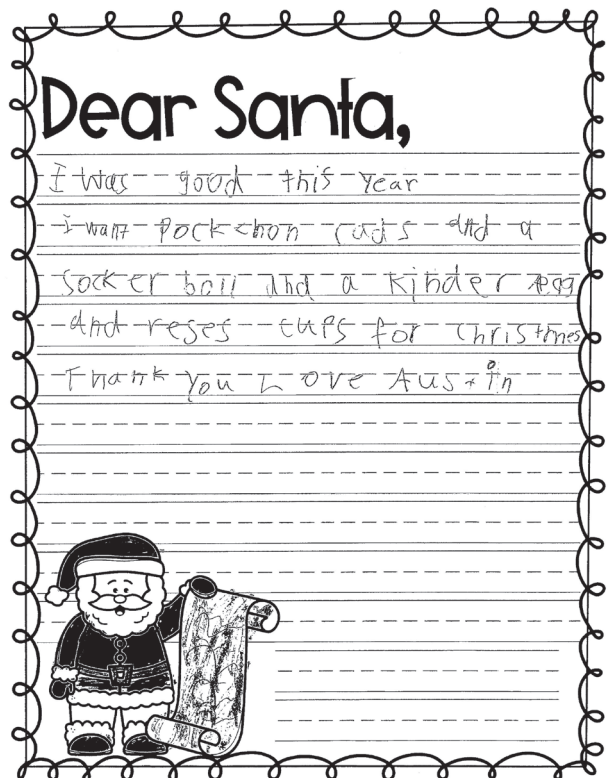 Dear Santa,
I was good this year
I want pockchon cads and a
socker boll and a kinder egg
and reses cups for christmes
Thank you Love Austin